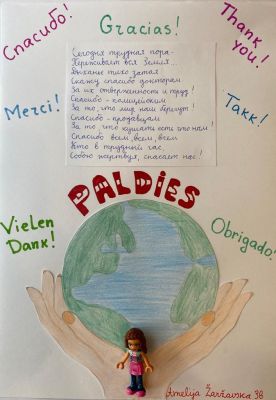 Спасибо!
Gracias!
Thank you!
Merci!
Takk!
Сегодня трудная пора-
Переживает вся Земля...
Дыхание тихо затая
Скажу спасибо докторам
За их отверженность и труд!
Спасибо - полицейским
За то, что мир наш берегут!
Спасибо - продавцам
За то, что кушать есть что нам
Спасибо всем, всем, всем
Кто в трудный час,
Собою жертвуя, спасает нас!
PALDIES
Vielen Dank!
Obrigado!
Amelija Žavžavska 3B